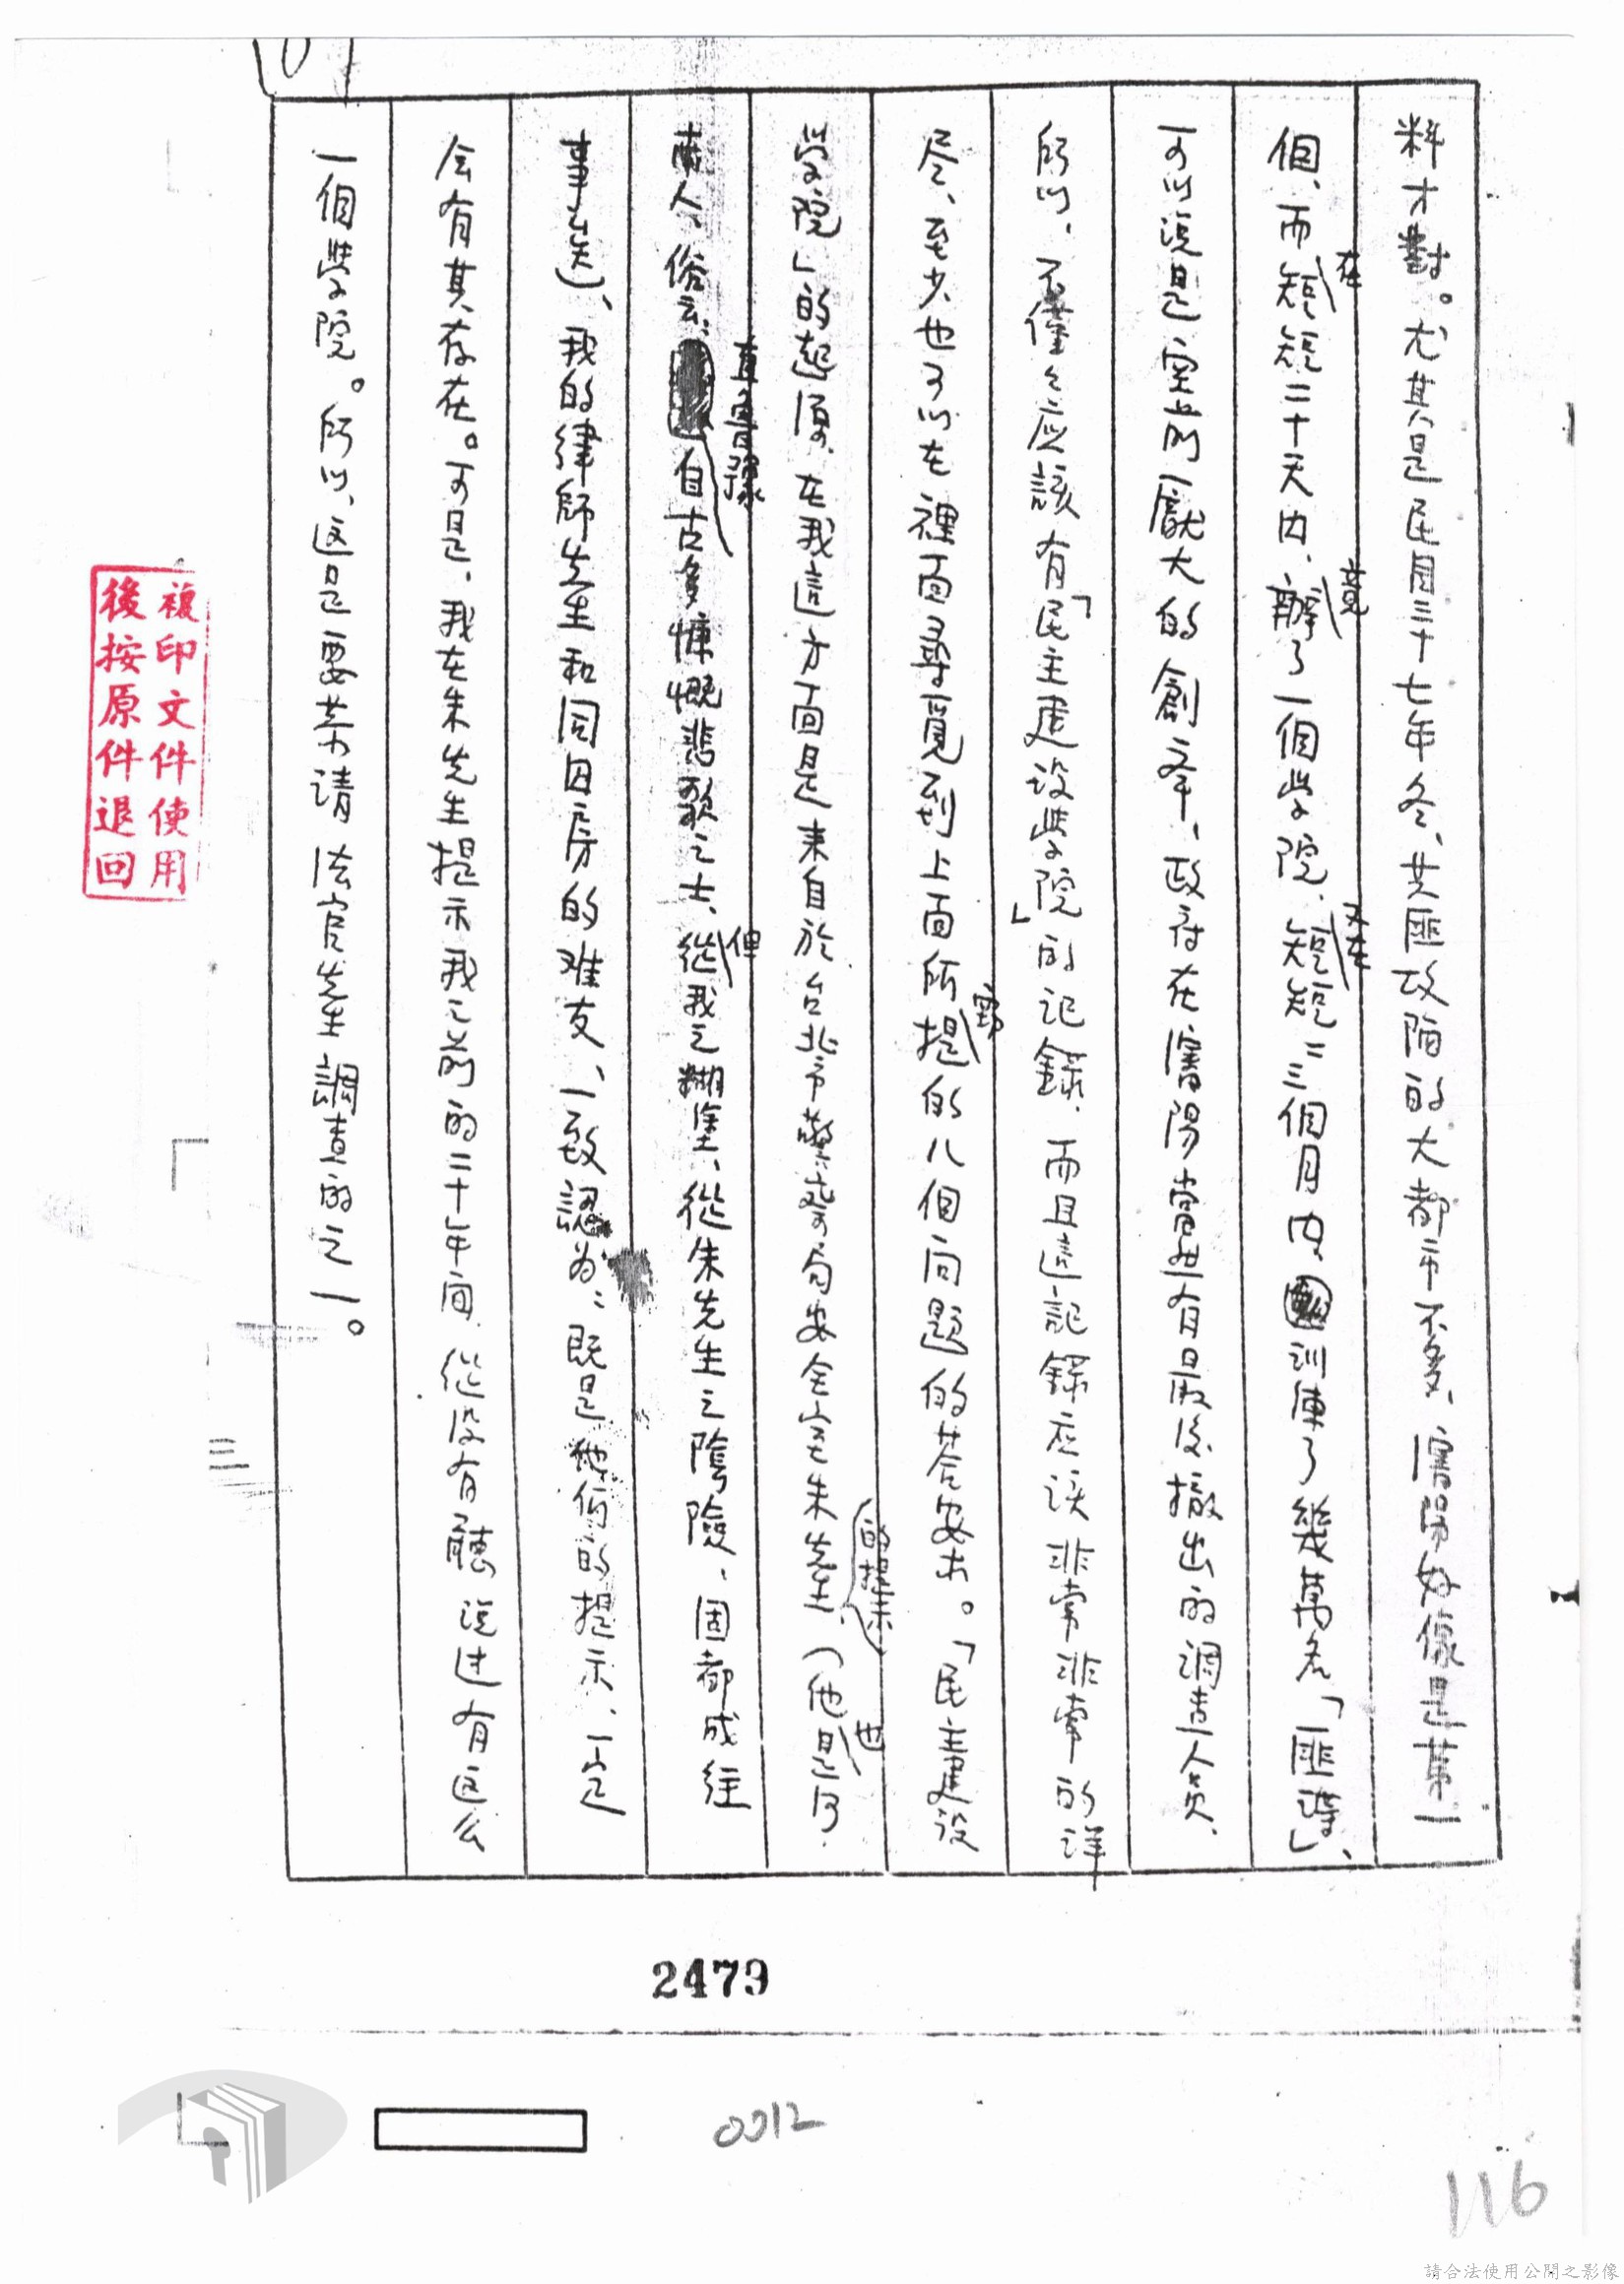 料才對。尤其是民国三十七年冬、共匪攻陷的大都市不多、瀋陽好像是第一
個、而在短短二十天内、竟辦了一個学院、又在短短二三個月内、訓練了幾萬名「匪諜」、
可以說是空前厖大的創举、政府在瀋陽當然有最後撤出的調查人员、
所以、不僅々应該有「民主建设学院」的记録、而且這記録应该非常非常的详
尽、至少也可以在裡面尋覓到上面所提的八個问题的答案。「民主建设
学院」的起源、在我這方面是来自於台北市警察局安全室朱先生的提示、(他也是河
南人、俗云：直魯豫自古多慷慨悲歌之士、但從我之糊塗、從朱先生之陰險、固都成往
事矣)、我的律師先生和同囚房的难友、一致認为：既是他们的提示、一定
会有其存在。可是、我在朱先生提示我之前的二十年间、從没有聽说过有这么
一個学院。所以、这是要恭请法官先生調查的之一。
複印文件使用
後按原件退回
2479
0012
116
請合法使用公開之影像